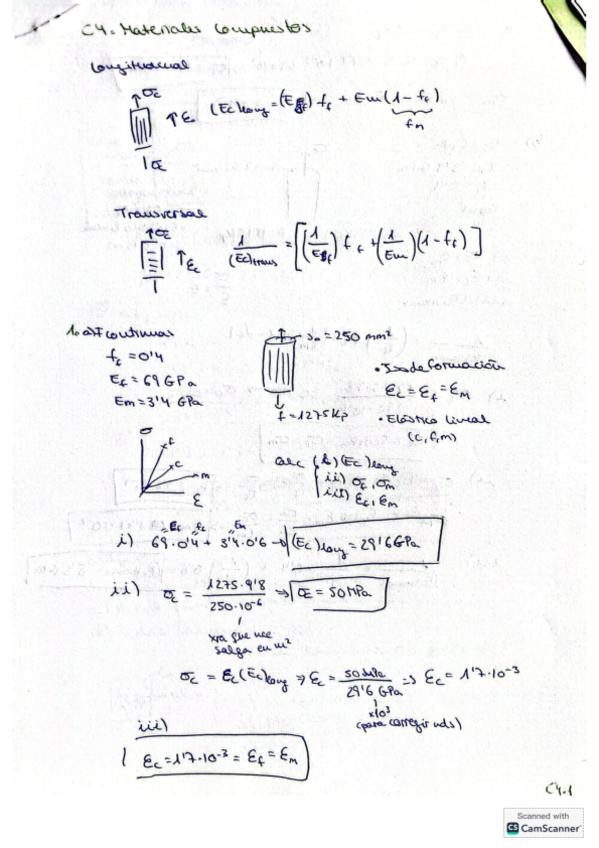 C4. Materiales compuestos
Longitudinal
σc
↑ εc (Ec)long = (Ef) fc + Em (1 - ff)
fm
σc
Transversal
↑σc
↑εc 1/(Ec)trans = [(1/Ef) ff + (1/Em)(1 - ff)]
1. a) F continuas
S₀ = 250 mm²
fc = 0'4
Ef = 69 GPa
Em = 3'4 GPa
f = 1275 Kp
• Isodeformación
εc = εf = εm
• Elástico lineal
(c, f, m)
σ
f
c
m
ε
calc (i) (Ec)long
ii) σf, σm
iii) εf, εm
Ef fc Em
i) 69·0'4 + 3'4·0'6 → (Ec)long = 29'6 GPa
ii) σc = 1275·9'8 / 250·10⁻⁶ ⇒ σc = 50 MPa
xra que nos
salga en m²
σc = εc (Ec)long ⇒ εc = 50 MPa / 29'6 GPa ⇒ εc = 1'7·10⁻³
x10³
(para corregir uds)
iii)
εc = 1'7·10⁻³ = εf = εm
C4.1
Scanned with
CS CamScanner